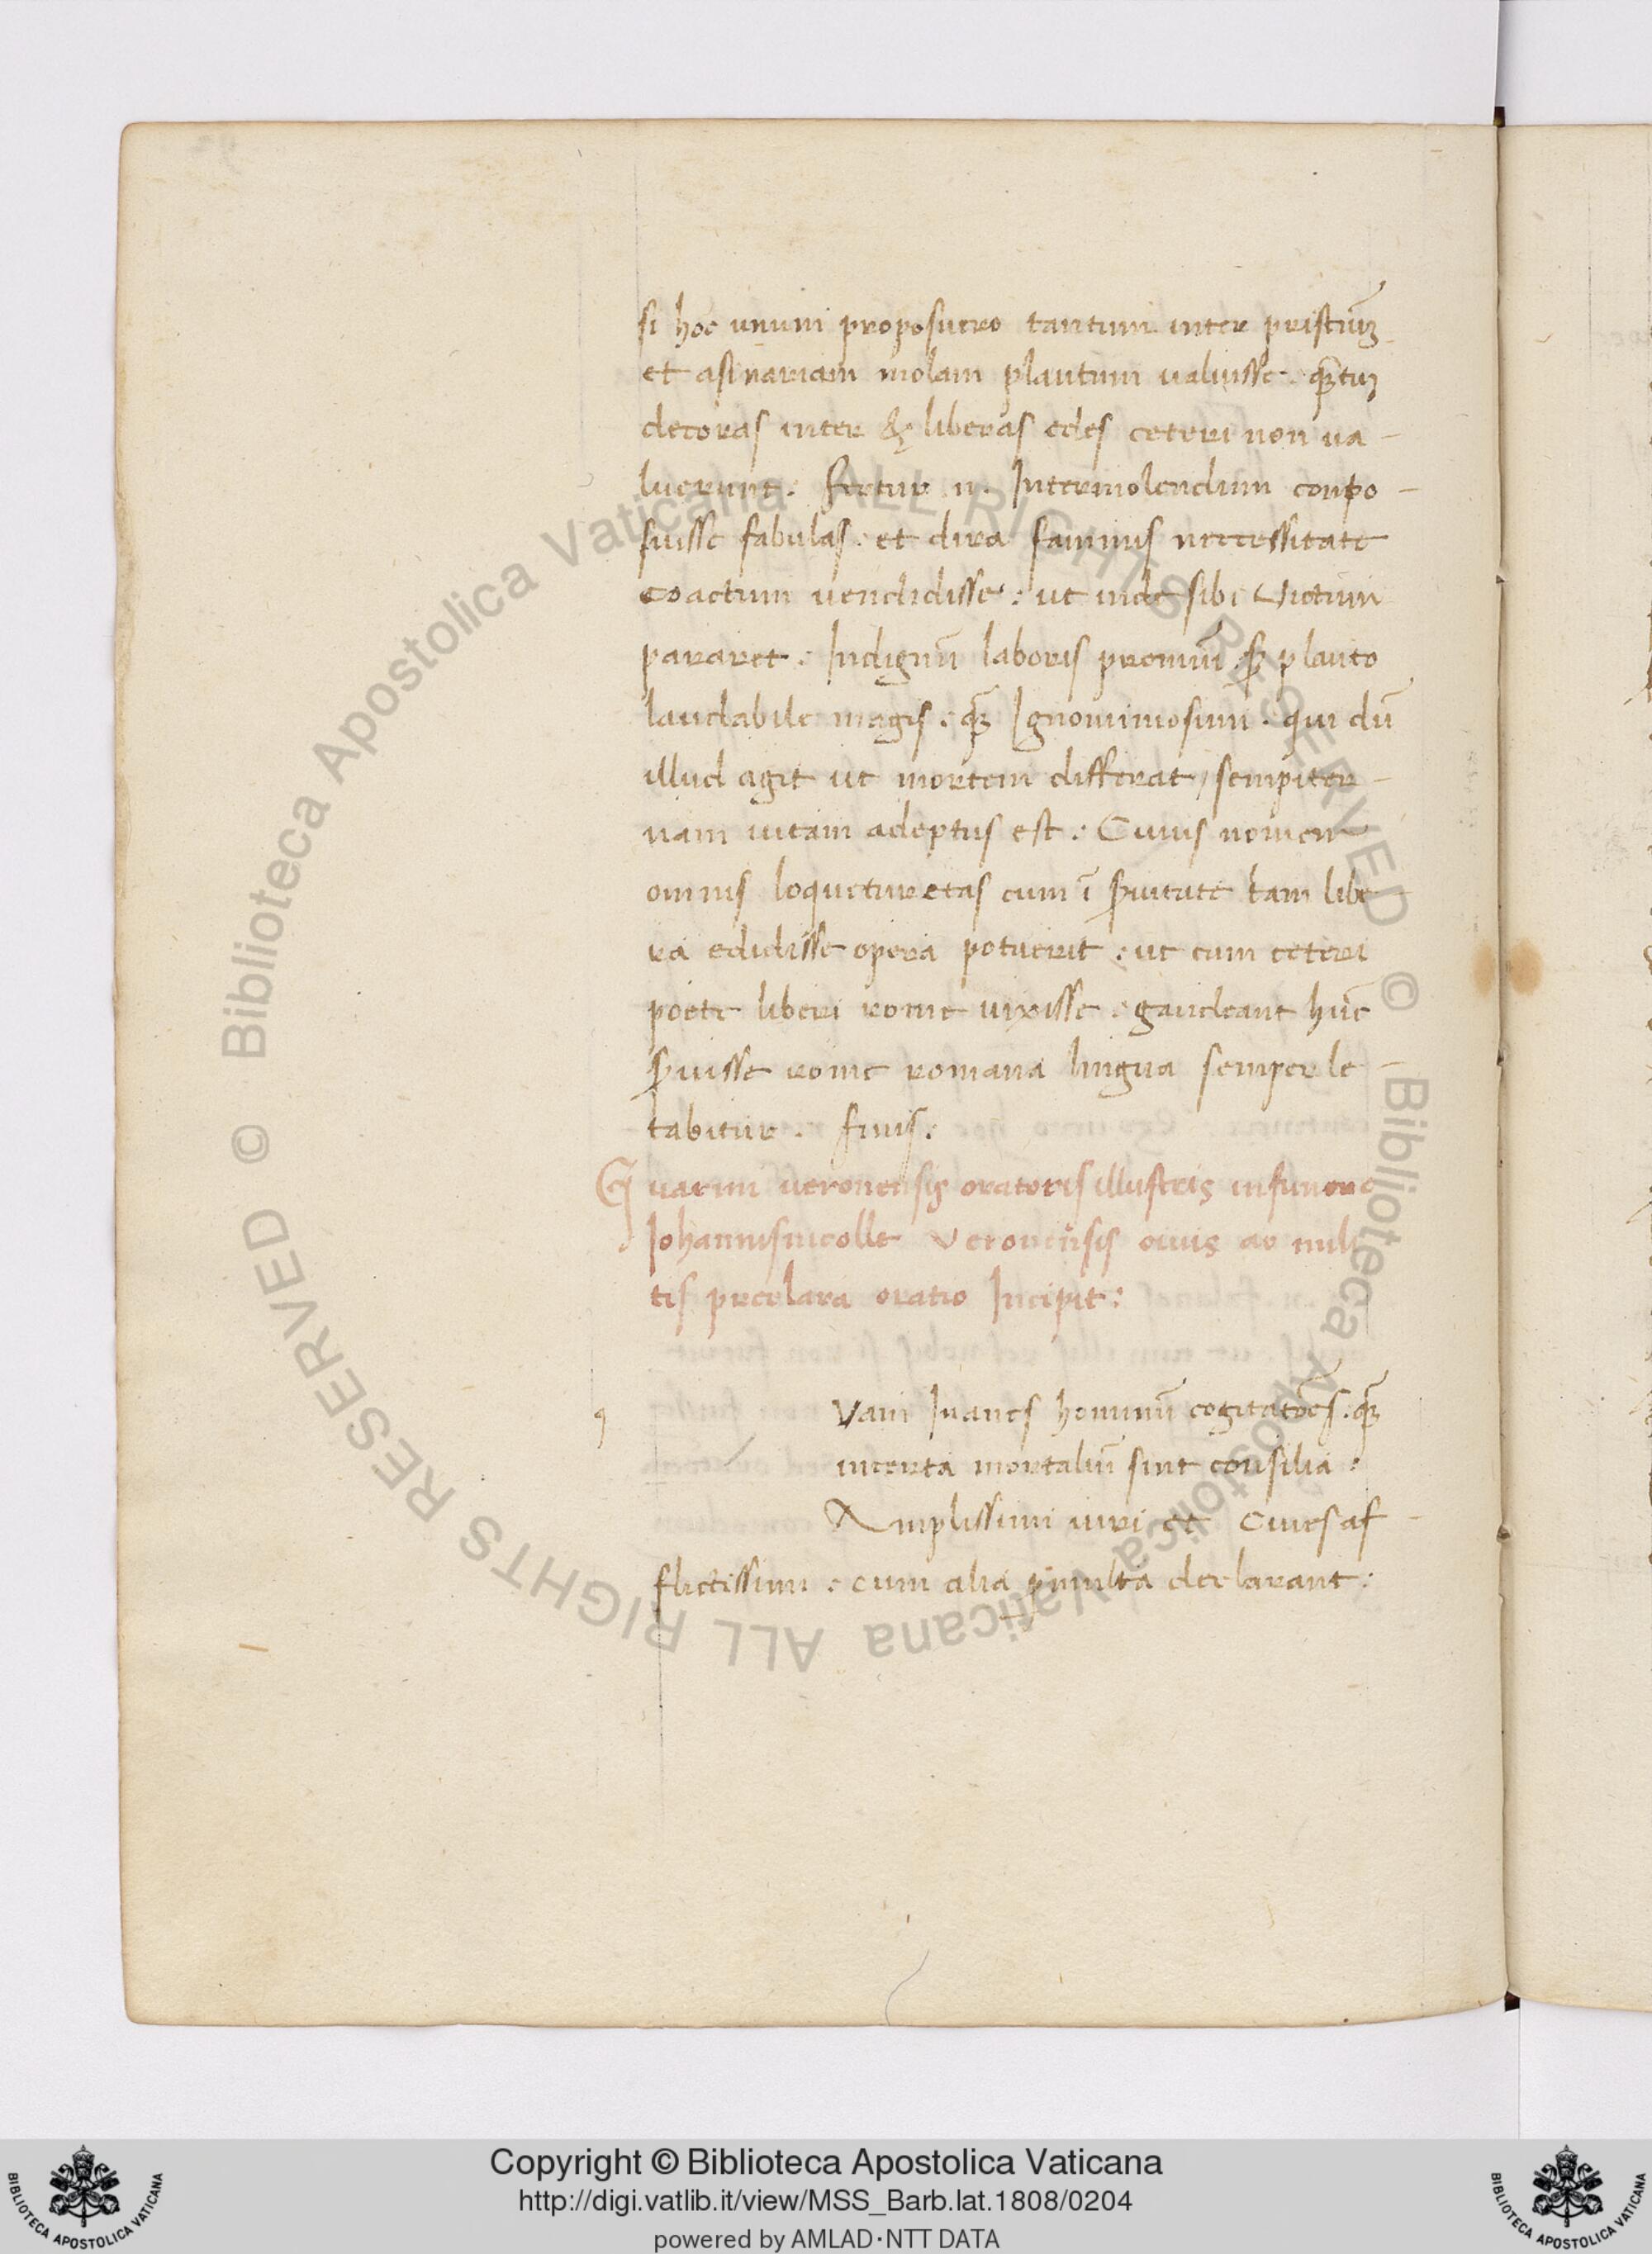 si hoc unum proposuero tantum inter pristinũ
et asinariam molam plautum valuisse. quãtuʒ
decoras inter & liberas edes ceteri non va-
luerunt: fertur .n. Intermolendum conpo-
suisse fabulas. et dira faminis necessitate
coactum vendidisse: ut inde sibi Victum
pararet: Indignũ laboris premiũ. sꝫ plauto
laudabile magis. quã Ignominiosum. qui dũ
illud agit ut mortem differat, sempiter-
nam vitam adeptus est: Cuius nomen
omnis loquetur etas cum ĩ s̃uitute tam libe-
ra edidisse opera potuerit: ut cum ceteri
poete liberi rome vixisse. gaudeant hũc
s̃uisse rome romana lingua semper le-
tabitur. finis:
Guarini veronensis oratoris illustris in funere
Johannis nicolle Veronensis civis ac mili
tis preclara oratio Incipit:
q
Vam Inanes hominũ cogitatões. quã
incerta mortaliũ sint consilia:
Amplissimi viri et Cives af-
flictissimi: cum alia p̱multa declarant:
© Biblioteca Apostolica Vaticana ALL RIGHTS RESERVED © Biblioteca Apostolica Vaticana ALL RIGHTS RESERVED
BIBLIOTECA APOSTOLICA VATICANA
Copyright © Biblioteca Apostolica Vaticana
http://digi.vatlib.it/view/MSS_Barb.lat.1808/0204
powered by AMLAD·NTT DATA
BIBLIOTECA APOSTOLICA VATICANA